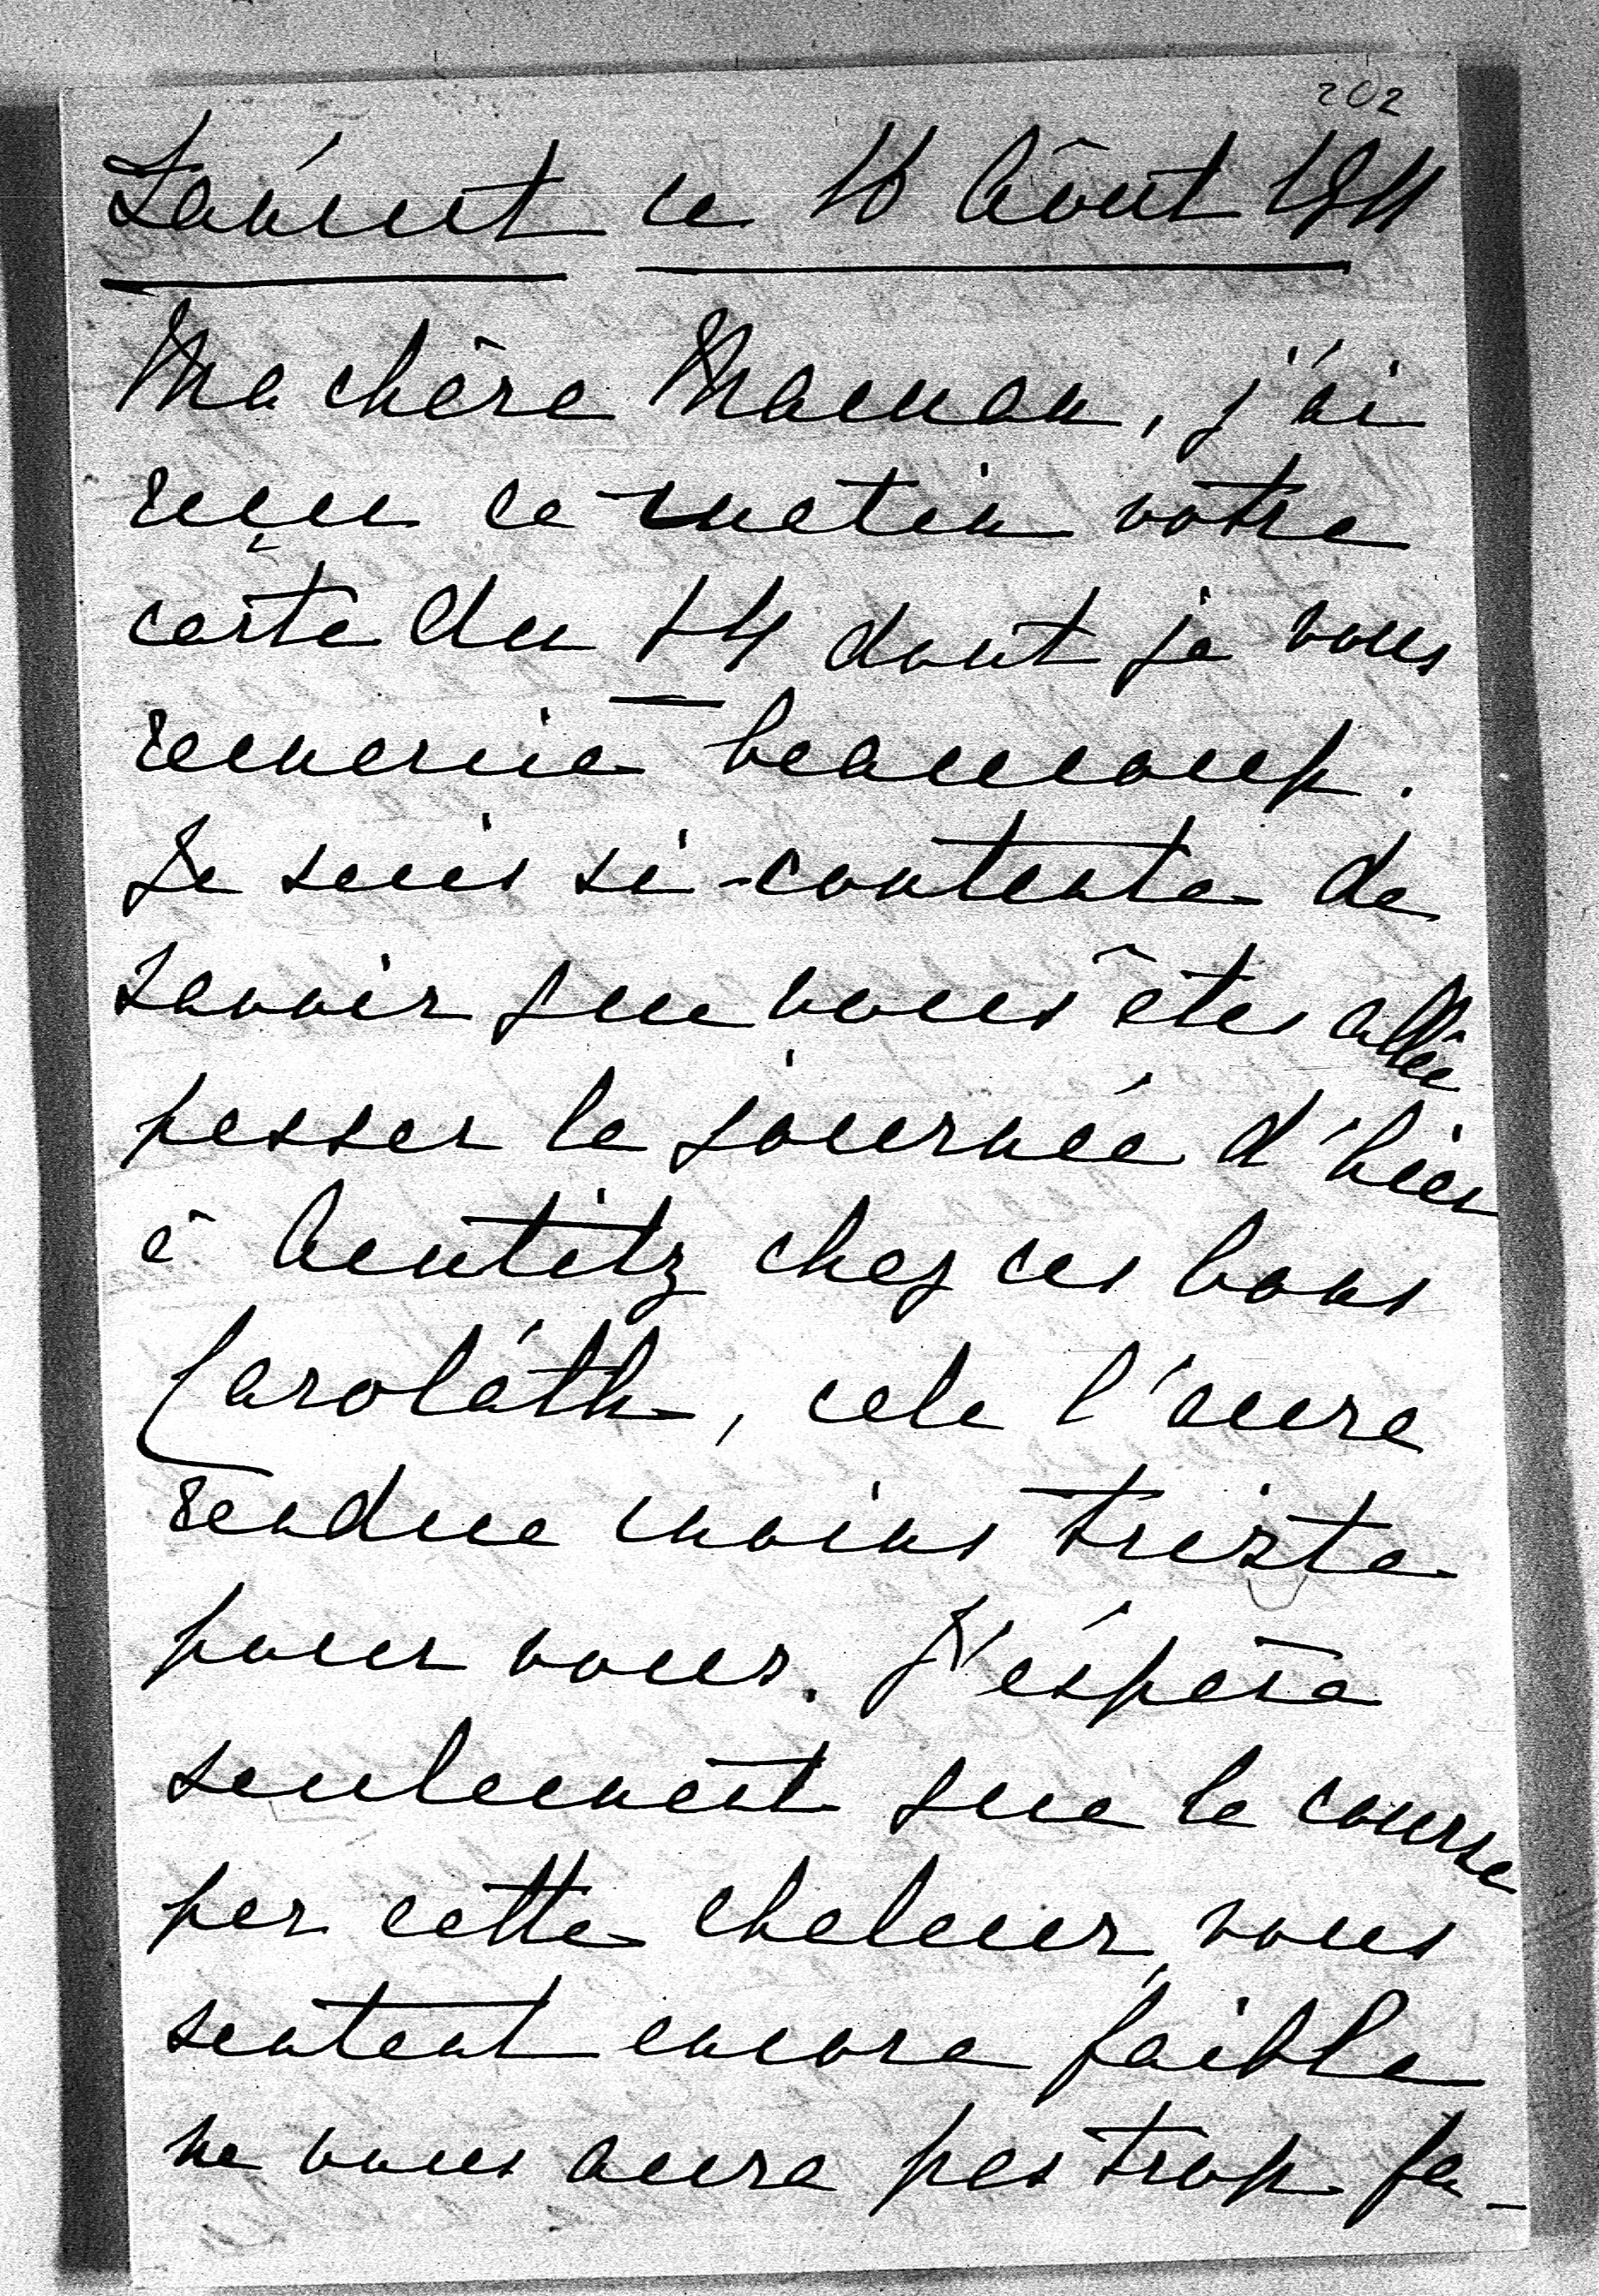 202
Laórent ce 16 Août 1911
Ma chère Maman, j'ai
reçu ce matin votre
carte du 14 dont je vous
remercie beaucoup.
Je suis si contente de
savoir que vous êtes allée
passer la journée d'hier
à Amtitz chez ces bons
Carolath, cela l'aura
rendue moins triste
pour vous. J'éspère
seulement que la course
par cette chaleur, vous
sentant encore faible
ne vous aura pas trop fa-